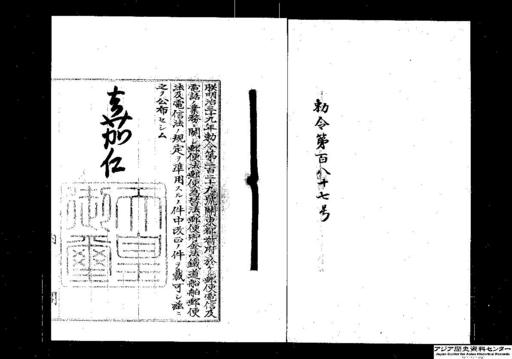 勅令第百八十七号
朕明治三十九年勅令第二百三十九號關東都督府ニ於ケル郵便電信及
電話ノ業務ニ關シ郵便法郵便爲替法郵便貯金法鐵道船舶郵便
法及電信法ノ規定ヲ準用スルノ件中改正ノ件ヲ裁可シ茲ニ
之ヲ公布セシム
嘉仁
天皇御璽
内閣
アジア歴史資料センター
Japan Center for Asian Historical Records